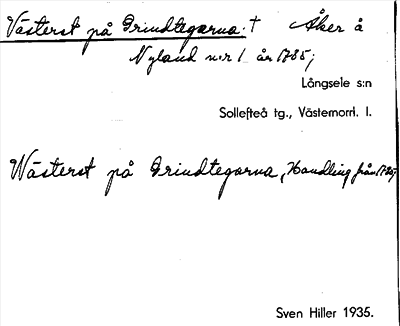 Västerst på Grindtegarna. † Åker å
Nyland n:r 1 år 1785;
Långsele s:n
Sollefteå tg., Västernorrl. l.
Wästerst på Grindtegarna, Handling från 1785
Sven Hiller 1935.